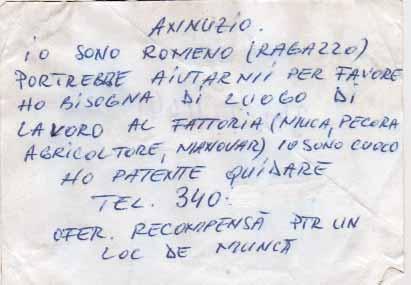 ANNUZIO.
IO SONO ROMENO (RAGAZZO)
PORTREBBE AIUTARMII PER FAVORE
HO BISOGNA DI LUOGO DI
LAVORO AL FATTORIA (MUCA, PECORA
AGRICOLTORE, MANOUAR) IO SONO CUOCO
HO PATENTE QUIDARE
TEL. 340.
OFER RECOMPENSĂ PTR UN
LOC DE MUNCĂ